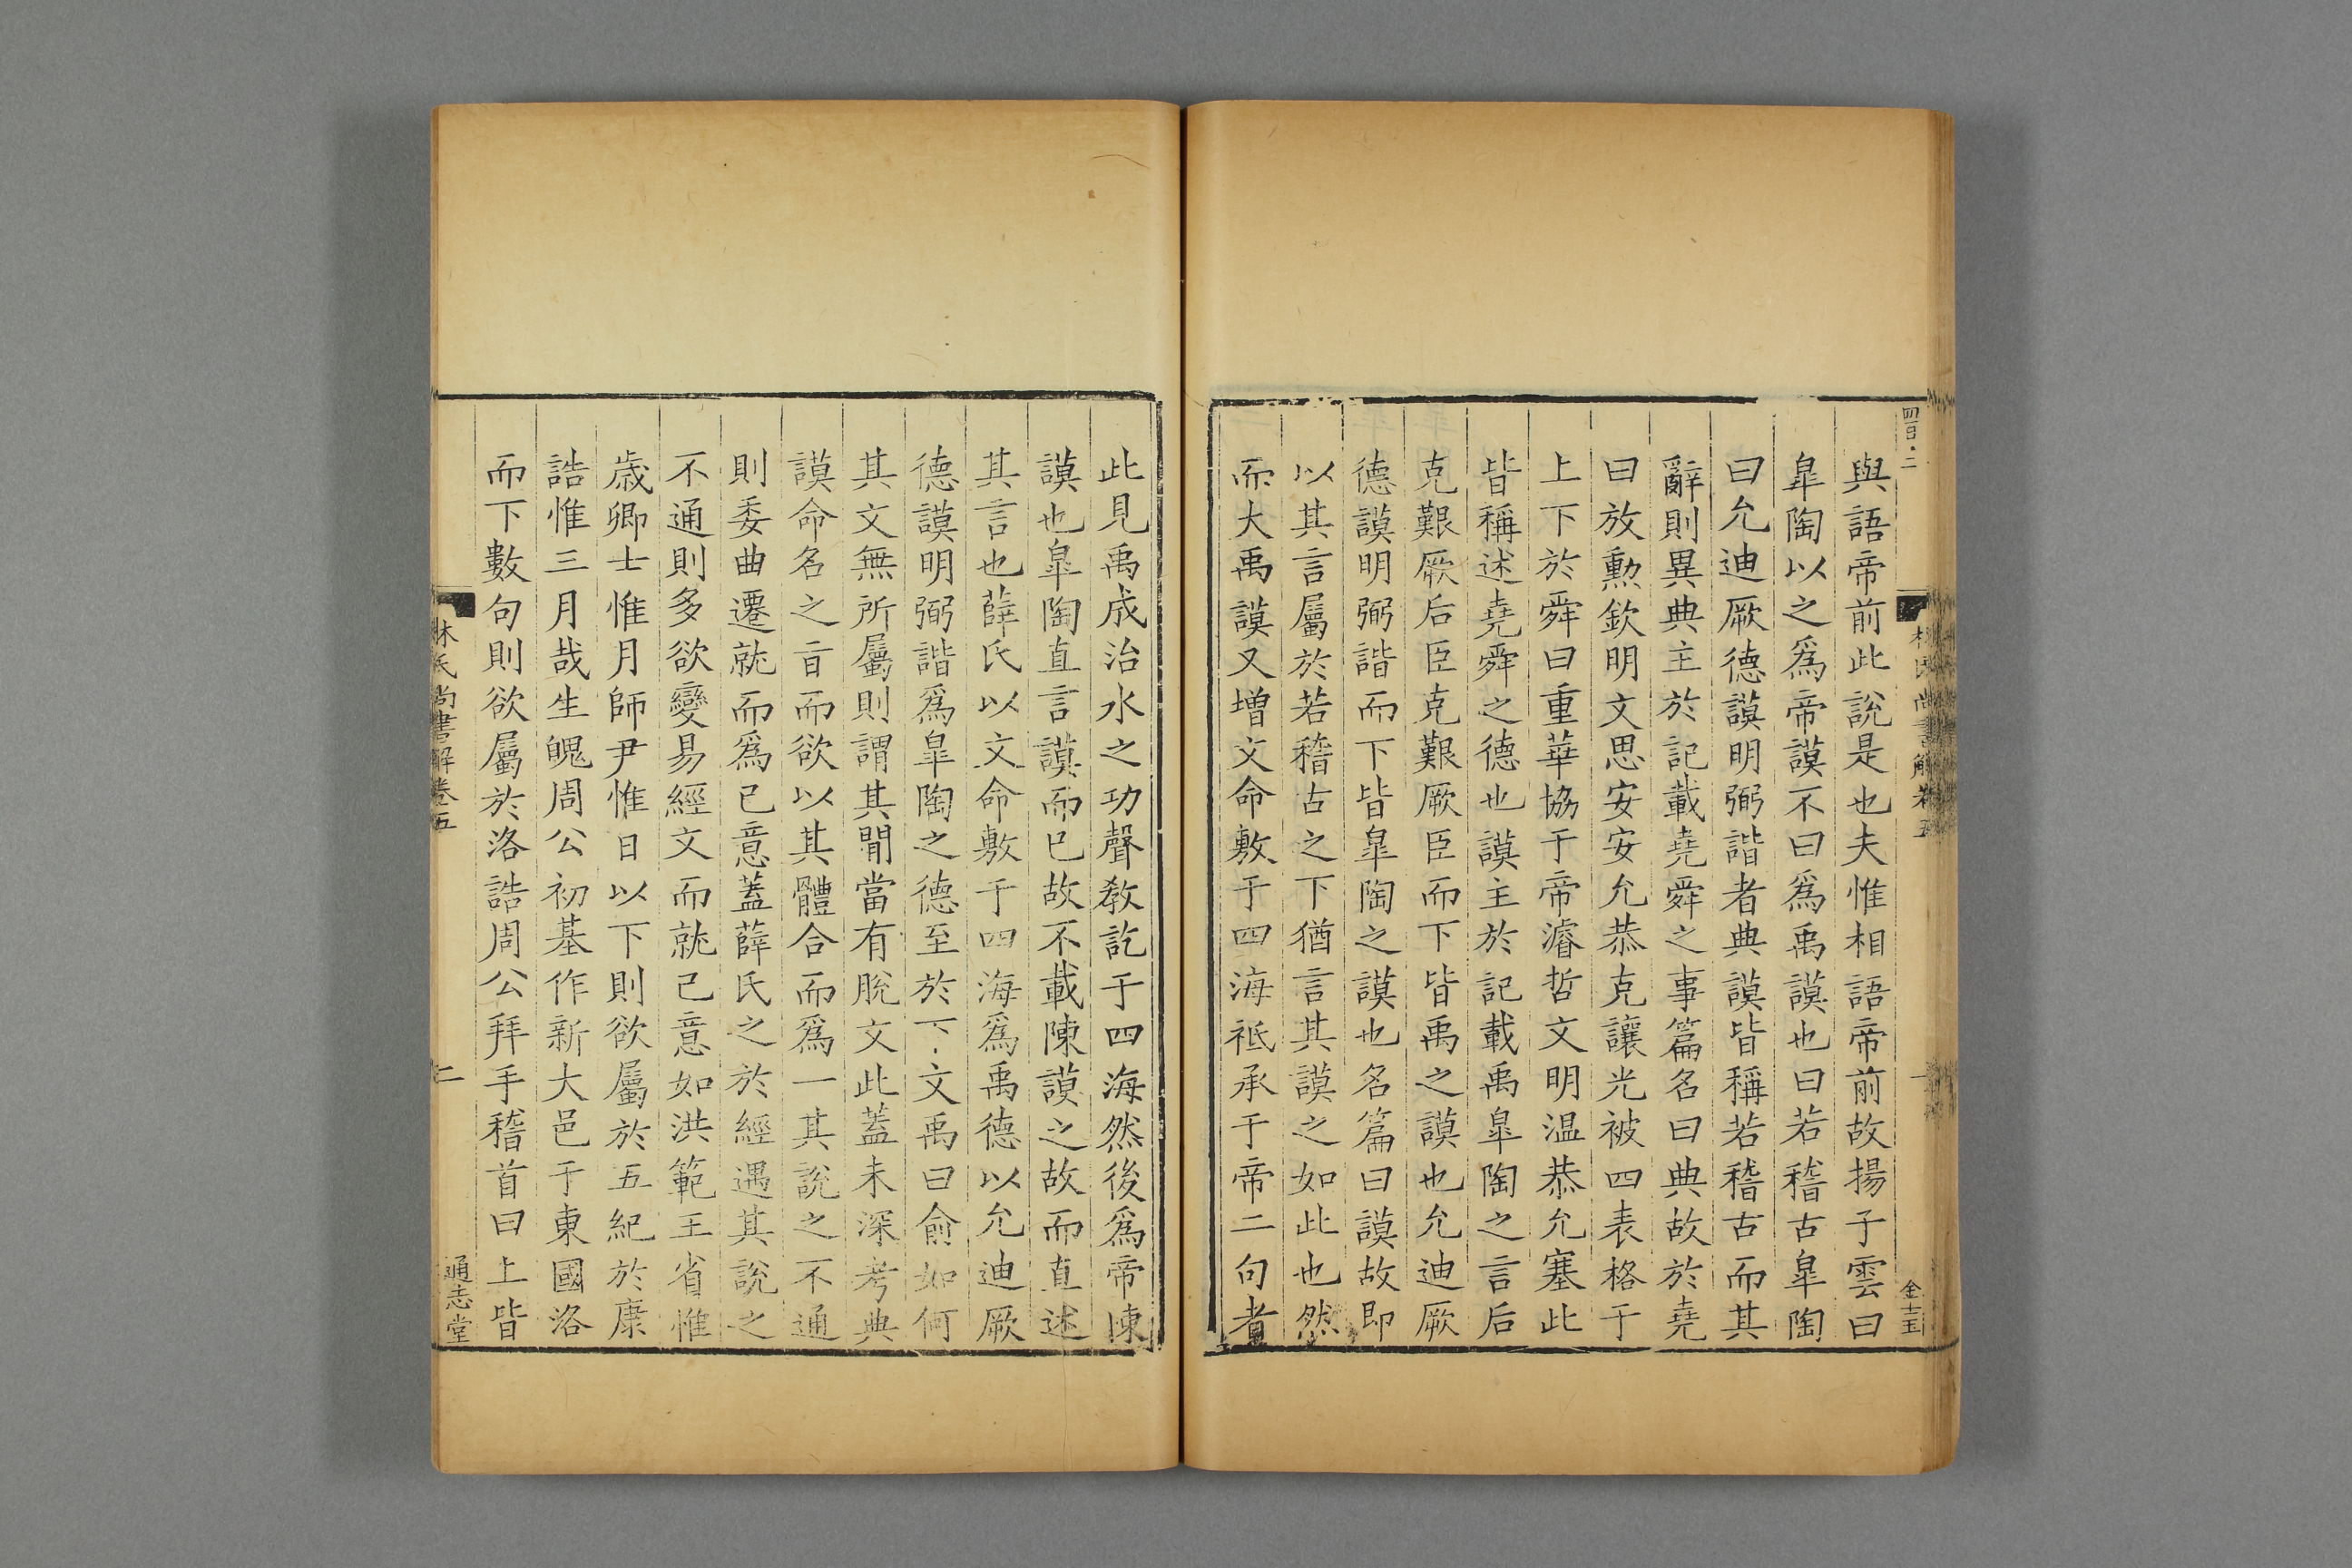 與語帝前此說是也夫惟相語帝前故揚子雲曰
臯陶以之爲帝謨不曰爲禹謨也曰若稽古臯陶
曰允迪厥德謨明弼諧者典謨皆稱若稽古而其
辭則異典主於記載堯舜之事篇名曰典故於堯
曰放勲欽明文思安安允恭克讓光被四表格于
上下於舜曰重華協于帝濬哲文明温恭允塞此
皆稱述堯舜之德也謨主於記載禹臯陶之言后
克艱厥后臣克艱厥臣而下皆禹之謨也允迪厥
德謨明弼諧而下皆臯陶之謨也名篇曰謨故即
以其言屬於若稽古之下猶言其謨之如此也然
而大禹謨又增文命敷于四海祗承于帝二句者
林氏尚書解卷五
一
金士玉
此見禹成治水之功聲教訖于四海然後爲帝陳
謨也臯陶直言謨而已故不載陳謨之故而直述
其言也薛氏以文命敷于四海爲禹德以允迪厥
德謨明弼諧爲臯陶之德至於下文禹曰俞如何
其文無所屬則謂其閒當有脫文此蓋未深考典
謨命名之旨而欲以其體合而爲一其說之不通
則委曲遷就而爲已意蓋薛氏之於經遇其說之
不通則多欲變易經文而就己意如洪範王省惟
歳卿士惟月師尹惟日以下則欲屬於五紀於康
誥惟三月哉生魄周公初基作新大邑于東國洛
而下數句則欲屬於洛誥周公拜手稽首曰上皆
林氏尚書解卷五
二
通志堂